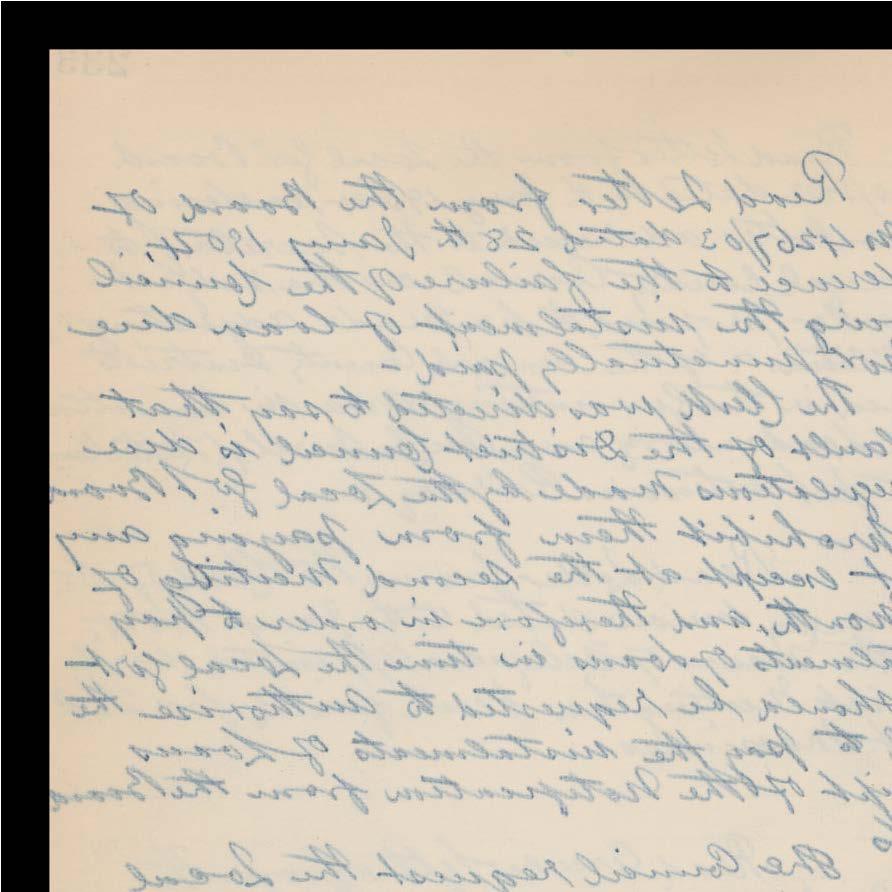 Read Letter from the Board of
4267/03 dated 28th Jany 1904
erence to the failure of the Council
ing the instalment of loan due
punctually paid -
The Clerk was directed to say that
ault of the District Council is due
egulations made by the Local Govt Board
prohibit them from paying any
t except at the second meeting of
month, and therefore in order to pay
alments of loans in time the Local Govt
be requested to authorise the
to pay the instalments of Loans
ipt of the notification from the Board
The Council request the Local